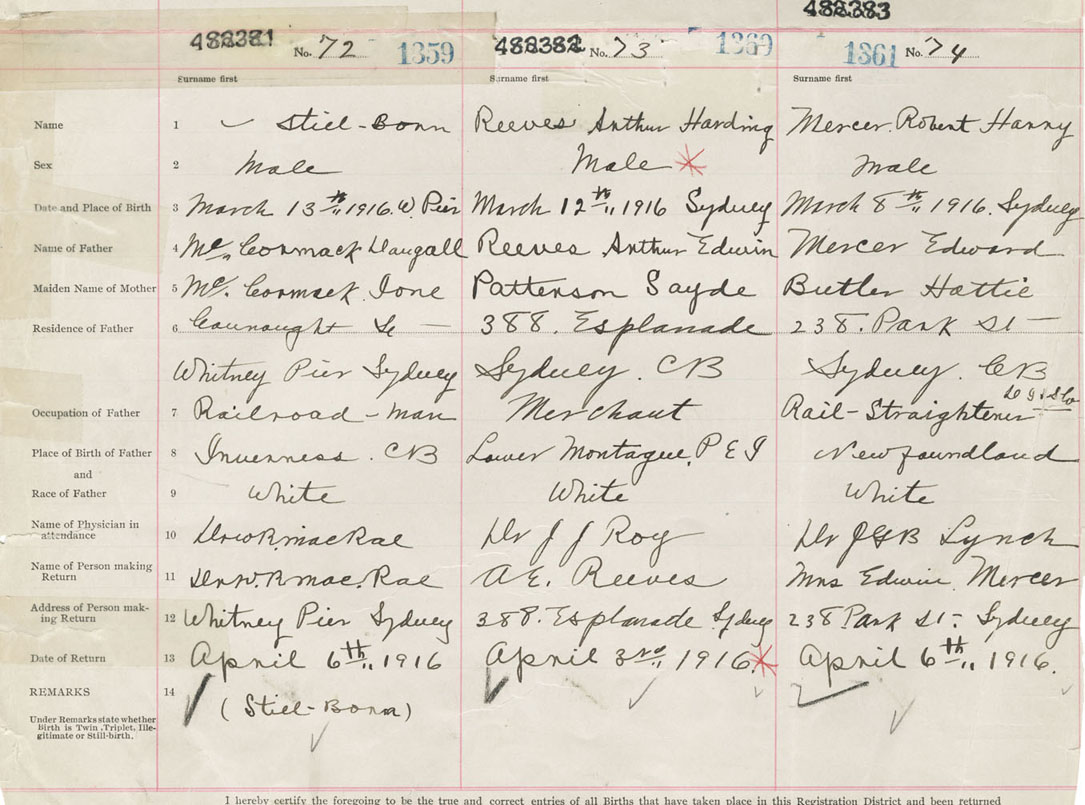 488381 No. 72 1359 488382 No. 73 1360 488383 1361 No. 74
Surname first Surname first Surname first
Name 1 Still-Born Reeves Arthur Harding Mercer. Robert Harry
Sex 2 Male Male Male
Date and Place of Birth 3 March 13th 1916. W. Pier March 12th 1916 Sydney March 8th 1916. Sydney
Name of Father 4 Mc Cormack Daugall Reeves Arthur Edwin Mercer Edward
Maiden Name of Mother 5 Mc. Cormack Ione Patterson Sayde Butler Hattie
Residence of Father 6 Connought St — 388. Esplanade 238. Park St —
Whitney Pier Sydney Sydney. CB Sydney. CB
Occupation of Father 7 Railroad-man Merchant Rail-Straightener
Place of Birth of Father 8 Inverness. CB Lower Montague, P E I Newfoundland
and
Race of Father 9 White White White
Name of Physician in attendance 10 Dr W R. MacRae Dr J J Roy Dr J G B Lynch
Name of Person making Return 11 Dr W. R Mac. Rae A E. Reeves Mrs Edwin Mercer
Address of Person making Return 12 Whitney Pier Sydney 388. Esplanade Sydney 238 Park St. Sydney
Date of Return 13 April 6th 1916 April 3rd 1916. April 6th 1916.
REMARKS 14 (Still-Born)
Under Remarks state whether
Birth is Twin, Triplet, Ille-
gitimate or Still-birth.
I hereby certify the foregoing to be the true and correct entries of all Births that have taken place in this Registration District and been returned